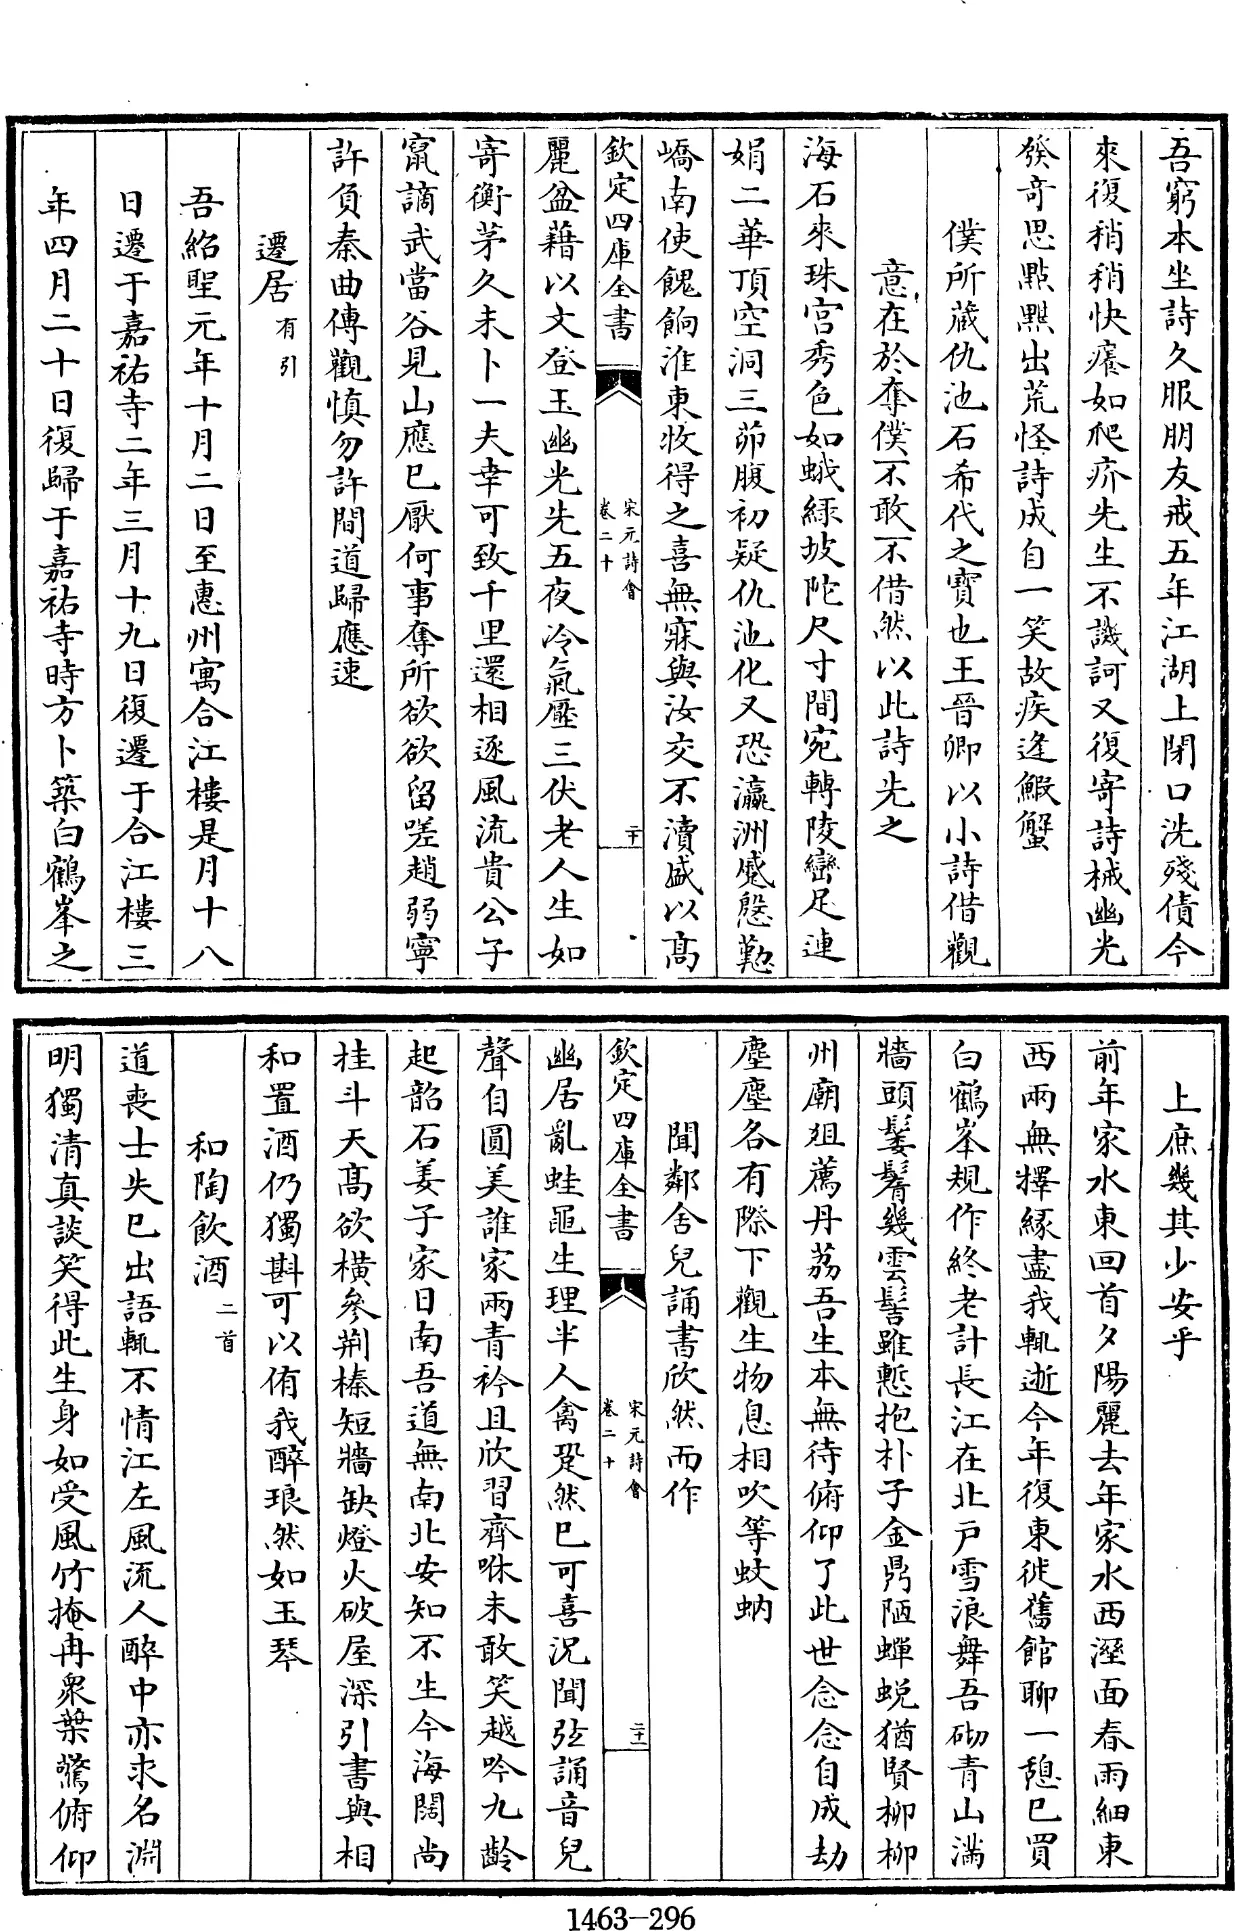 吾窮本坐詩久服朋友戒五年江湖上閉口洗殘債今
來復稍稍快癢如爬疥先生不譏訶又復寄詩械幽光
發奇思點黮出荒怪詩成自一笑故疾逢鰕蟹
僕所藏仇池石希代之寶也王晉卿以小詩借觀
意在於奪僕不敢不借然以此詩先之
海石來珠宮秀色如蛾緑坡陀尺寸間宛轉陵巒足連
娟二華頂空洞三茆腹初疑仇池化又恐瀛洲蹙慇懃
嶠南使餽餉淮東牧得之喜無寐與汝交不瀆盛以高
欽定四庫全書
宋元詩會
卷二十
二十
麗盆藉以文登玉幽光先五夜冷氣壓三伏老人生如
寄衡茅久未卜一夫幸可致千里還相逐風流貴公子
竄謫武當谷見山應已厭何事奪所欲欲留嗟趙弱寧
許負秦曲傳觀慎勿許間道歸應速
遷居有引
吾紹聖元年十月二日至惠州寓合江樓是月十八
日遷于嘉祐寺二年三月十九日復遷于合江樓三
年四月二十日復歸于嘉祐寺時方卜築白鶴峯之
上庶幾其少安乎
前年家水東回首夕陽麗去年家水西溼面春雨細東
西兩無擇緣盡我輒逝今年復東徙舊館聊一憩已買
白鶴峯規作終老計長江在北戶雪浪舞吾砌青山滿
牆頭鬖髾幾雲髻雖慙抱朴子金鼎陋蟬蛻猶賢柳柳
州廟狙薦丹荔吾生本無待俯仰了此世念念自成劫
塵塵各有際下觀生物息相吹等蚊蚋
聞鄰舍兒誦書欣然而作
欽定四庫全書
宋元詩會
卷二十
二十一
幽居亂蛙黽生理半人禽跫然已可喜況聞弦誦音兒
聲自圓美誰家兩青衿且欣習齊咻未敢笑越吟九齡
起韶石姜子家日南吾道無南北安知不生今海闊尚
挂斗天高欲橫參荆榛短牆缺燈火破屋深引書與相
和置酒仍獨斟可以侑我醉琅然如玉琴
和陶飲酒二首
道喪士失已出語輒不情江左風流人醉中亦求名淵
明獨清真談笑得此生身如受風竹掩冉衆葉驚俯仰
1463-296